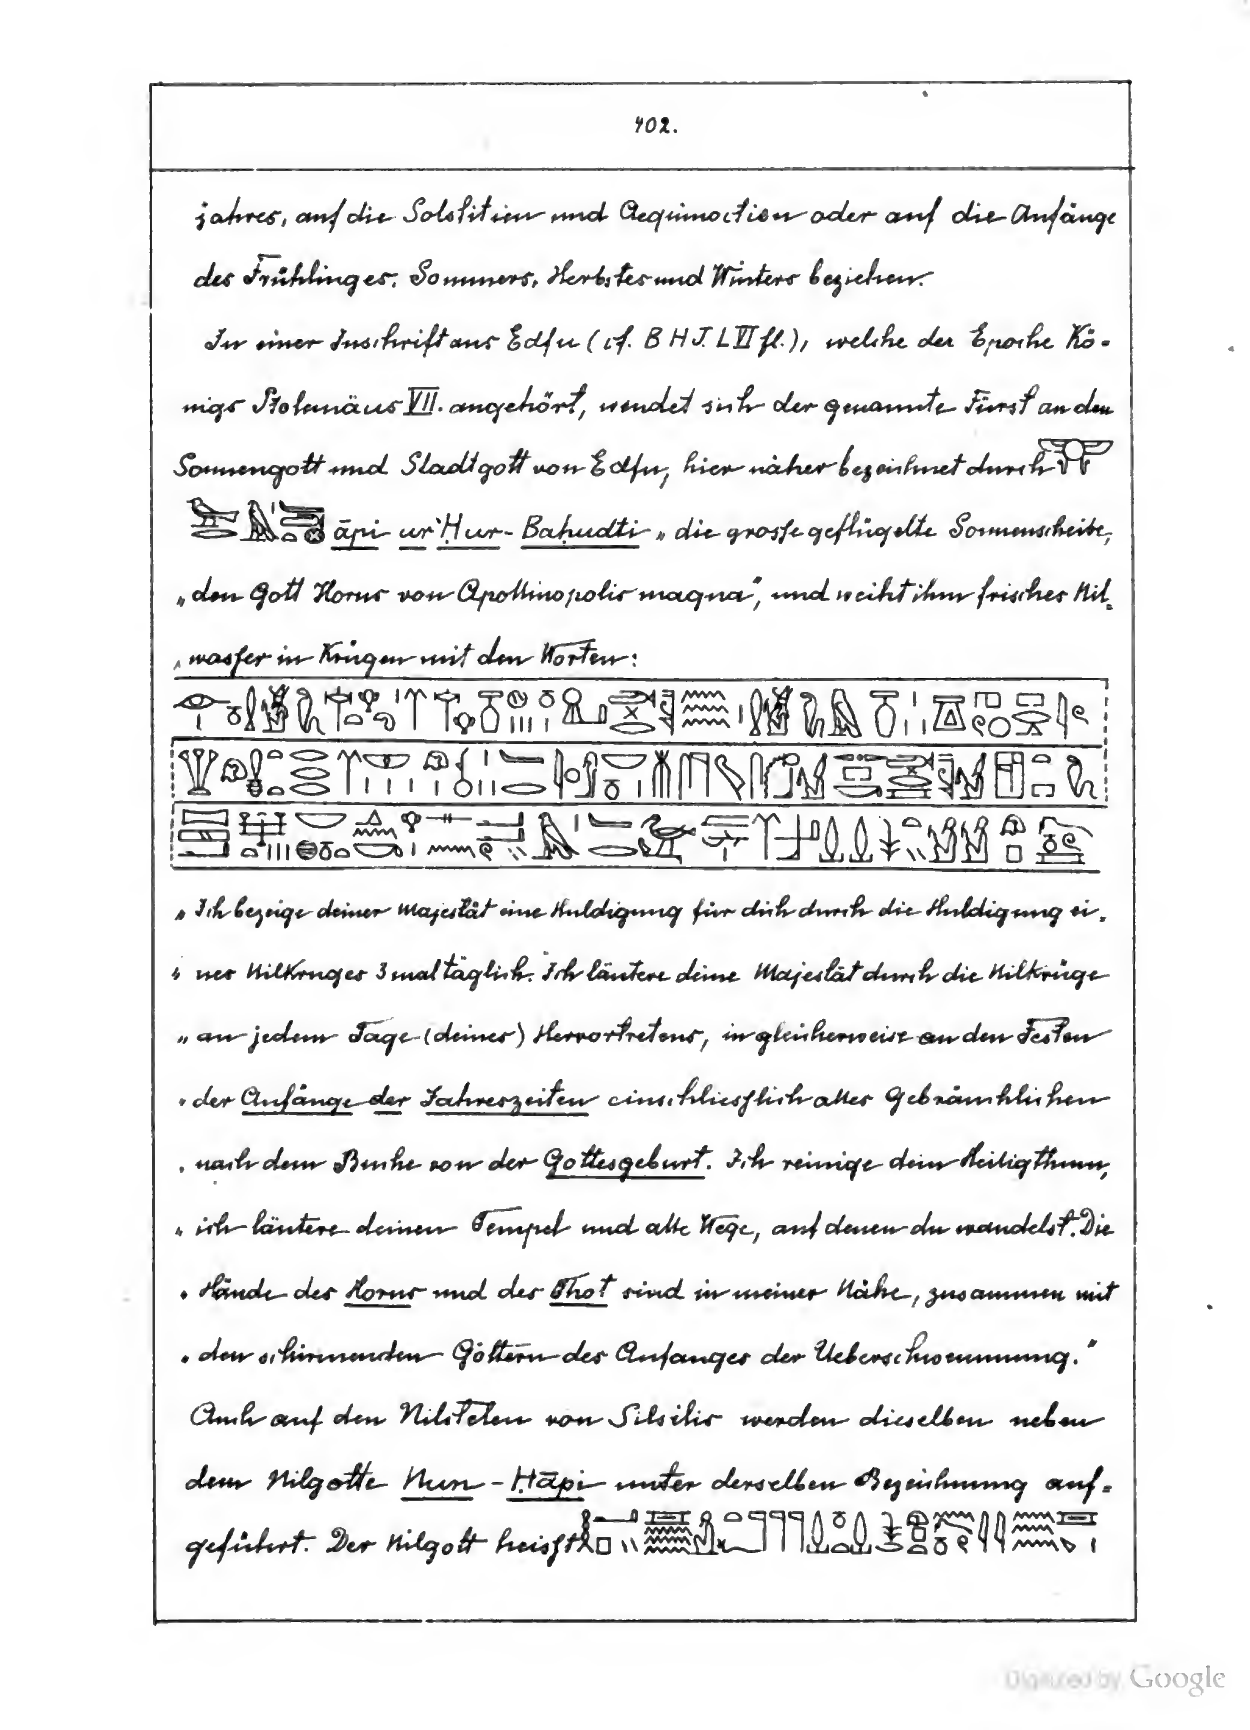 402.
jahres, auf die Solstitien und Aequinoctien oder auf die Anfänge
des Frühlinges, Sommers, Herbstes und Winters beziehen.
In einer Inschrift aus Edfu (cf. B H J. L VI fl.), welche der Epoche Kö-
nigs Ptolemäus VII. angehört, wendet sich der genannte Fürst an den
Sonnengott und Stadtgott von Edfu, hier näher bezeichnet durch
āpi ur Ḥur-Baḥudti „die grosse geflügelte Sonnenscheibe,
„den Gott Horus von Apollinopolis magna", und weiht ihm frisches Nil-
„wasser in Krügen mit den Worten:
„Ich bezeige deiner Majestät eine Huldigung für dich durch die Huldigung ei-
„nes Nilkruges 3 mal täglich. Ich läutere deine Majestät durch die Nilkrüge
„an jedem Tage (deines) Hervortretens, in gleicherweise an den Festen
„der Anfänge der Jahreszeiten einschliesslich alles Gebräuchlichen
„nach dem Buche von der Gottesgeburt. Ich reinige dein Heiligthum,
„ich läutere deinen Tempel und alle Wege, auf denen du wandelst. Die
„Hände des Horus und des Thot sind in meiner Nähe, zusammen mit
„den schirmenden Göttern des Anfanges der Ueberschwemmung."
Auch auf den Nilstelen von Silsilis werden dieselben neben
dem Nilgotte Nun-Ḥāpi unter derselben Bezeichnung auf-
geführt. Der Nilgott heisst
Digitized by Google